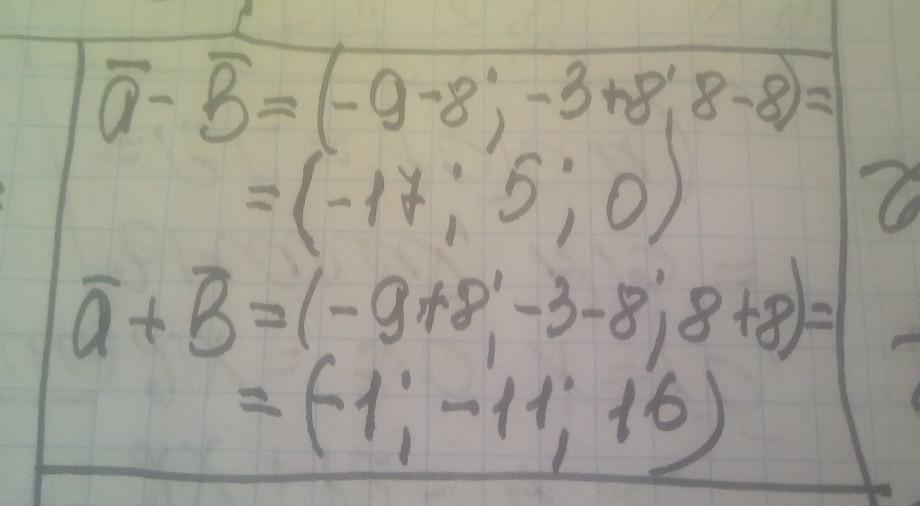 a̅ - B̅ = (-9-8; -3+8; 8-8) =
= (-17; 5; 0)
a̅ + B̅ = (-9+8; -3-8; 8+8) =
= (-1; -11; 16)